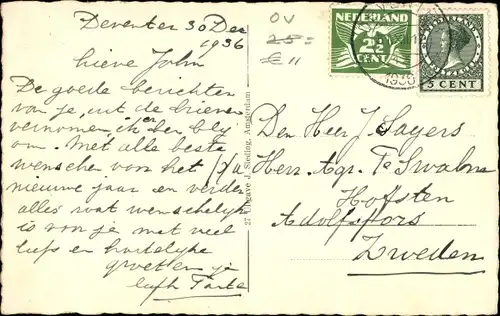 Deventer 30 Dec
1936
Lieve John
De goede berichten
van je, uit de brieven
vernomen, ik ben blij
om. Met alle beste
wenschen voor het
nieuwe jaar en verder
alles wat wenschelijk
is voor je met veel
liefs en hartelijke
groeten je
liefh Tante
OV
25 =
€ 11
27 Uitgave J. Sleding, Amsterdam
NEDERLAND
2½
CENT
NEDERLAND
5 CENT
1936
Den Heer J. Sayers
p/a Herr. Agr. T. Swalm
Hofsten
Adolfsfors
Zweden